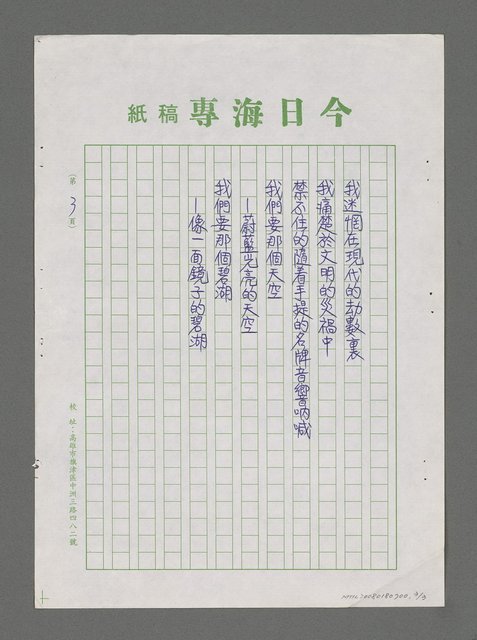 今日海專稿紙
我迷惘在現代的劫數裏
我痛楚於文明的災禍中
禁不住的隨着手提的名牌音響吶喊
我們要那個天空
—蔚藍光亮的天空
我們要那個碧湖
—像一面鏡子的碧湖
(第3頁)
校址：高雄市旗津區中洲三路四八二號
NMTL20080180700, 3/3